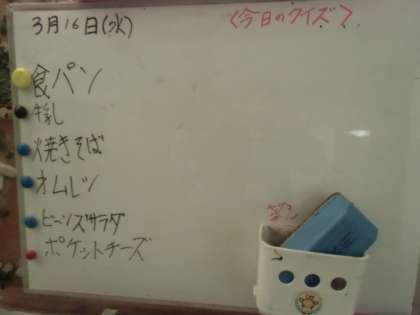 3月16日(水)
<今日のクイズ>
食パン
牛乳
焼きそば
オムレツ
ビーンズサラダ
ポケットチーズ